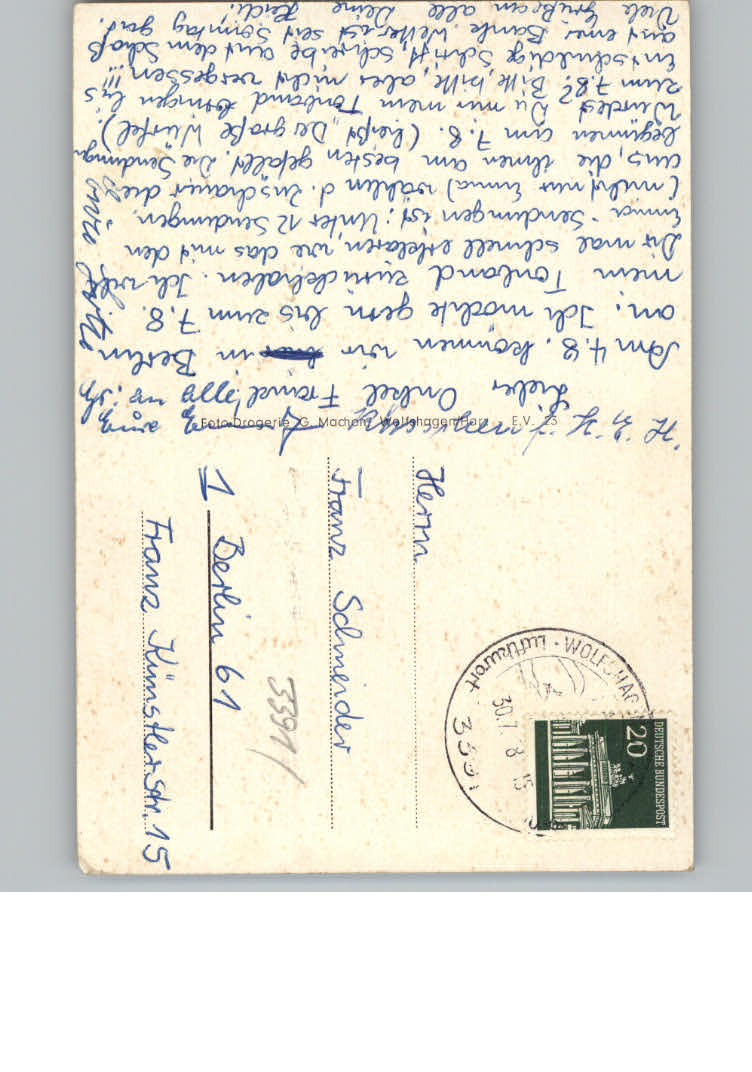 Lieber Onkel Franz!
Am 4.8. kommen wir in Berlin
an. Ich möchte gern bis zum 7.8.
mein Tonband zurückhaben. Ich will
Dir mal schnell erklären, wie das mit den
Emma-Sendungen ist: Unter 12 Sendungen
(nicht nur Emma) wählen d. Zuschauer die
aus, die ihnen am besten gefällt. Die Sendungen
beginnen am 7.8. (heißt „Der große Würfel)
Würdest Du mir mein Tonband bringen bis
zum 7.8? Bitte, bitte, aber nicht vergessen!!!
Entschuldige Schrift, schreibe auf dem Schoß
auf einer Bank. Wetter ist seit Sonntag gut.
Viele Grüße an alle Deine Heidi.
Foto-Drogerie G. Machon, Wolfshagen/Harz E.V. 23
Herrn
Franz Schneider
1 Berlin 61
Franz Künstlerstr. 15
3391/
DEUTSCHE BUNDESPOST
20
WOLFSHAGEN
Luftkurort
3391
30.7.